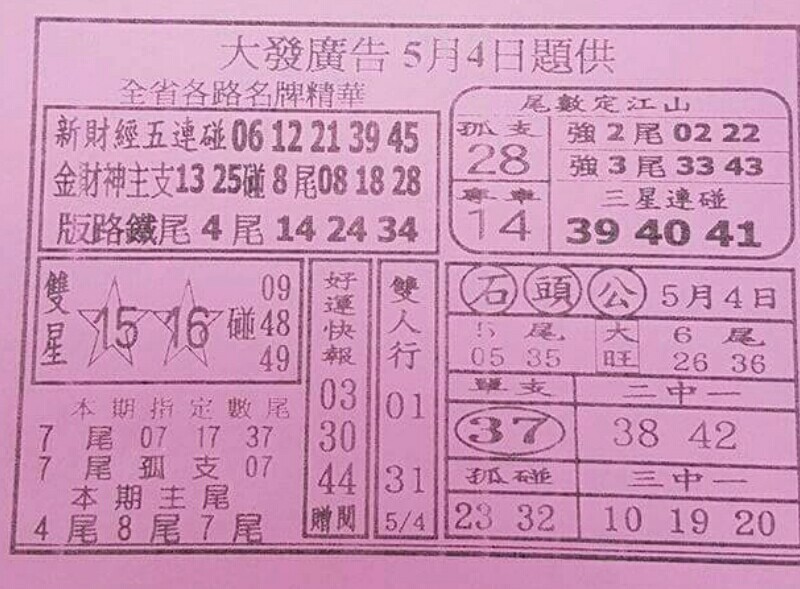 大發廣告5月4日題供
全省各路名牌精華
新財經五連碰06 12 21 39 45
金財神主支13 25碰8尾08 18 28
版路鐵尾4尾14 24 34
尾數定江山
孤支
28
強2尾02 22
強3尾33 43
專車
14
三星連碰
39 40 41
雙星
15 16 碰
09
48
49
本期指定數尾
7尾 07 17 37
7尾孤支07
本期主尾
4尾8尾7尾
好運快報
03
30
44
贈閱
雙人行
01
31
5/4
石頭公 5月4日
5尾
05 35
大旺
6尾
26 36
單支
37
二中一
38 42
孤碰
23 32
三中一
10 19 20